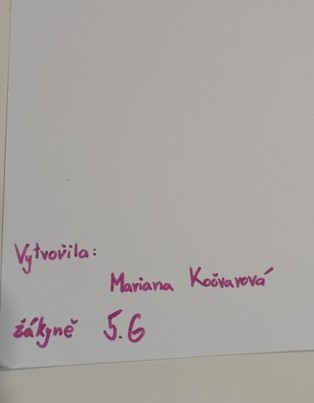 Vytvořila:
Mariana Kočvarová
žákyně 5.G